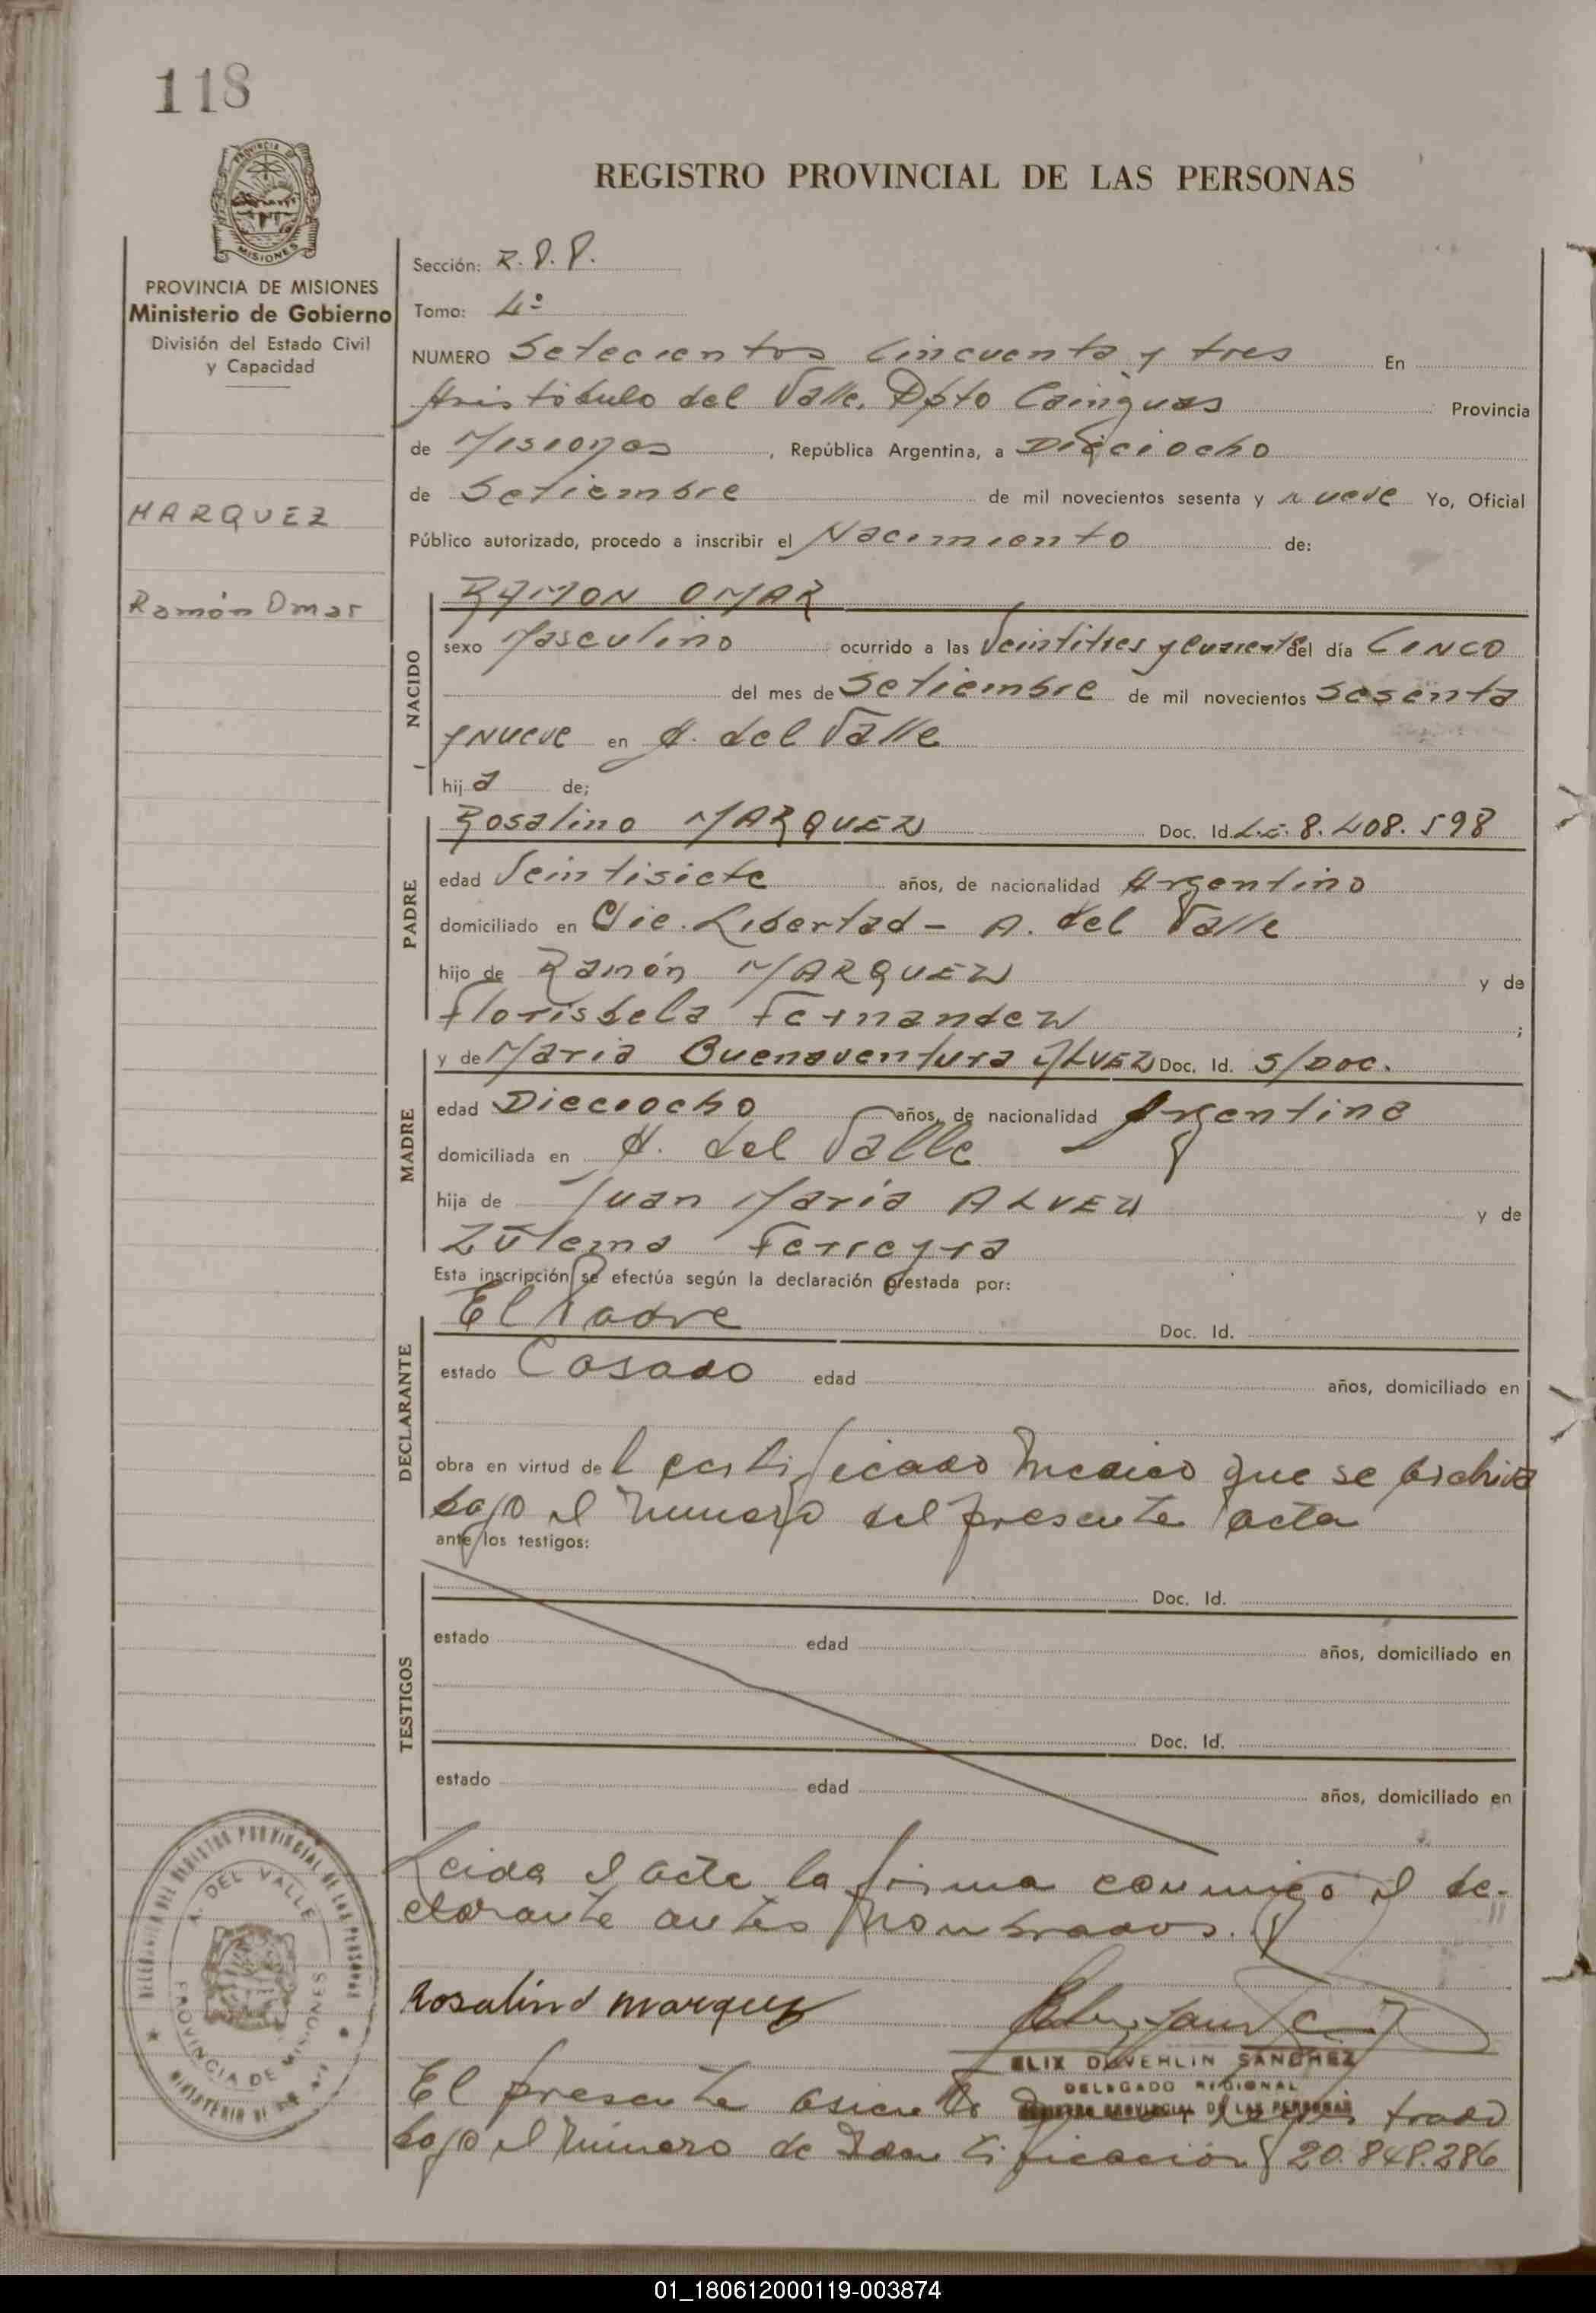 118
PROVINCIA DE
MISIONES
REGISTRO PROVINCIAL DE LAS PERSONAS
PROVINCIA DE MISIONES
Ministerio de Gobierno
División del Estado Civil
y Capacidad
MARQUEZ
Ramón Omar
Sección: R.P.P.
Tomo: 4º
NUMERO Setecientos Cincuenta y tres En
Aristóbulo del Valle, Dpto Cainguas Provincia
de Misiones, República Argentina, a Dieciocho
de Setiembre de mil novecientos sesenta y nueve Yo, Oficial
Público autorizado, procedo a inscribir el Nacimiento de:
NACIDO
RAMON OMAR
sexo Masculino ocurrido a las Veintitres y cuarenta del día CINCO
del mes de Setiembre de mil novecientos Sesenta
y Nueve en A. del Valle
hij a de;
PADRE
Rosalino MARQUEZ Doc. Id. L.E. 8.408.598
edad Veintisiete años, de nacionalidad Argentino
domiciliado en Cnie. Libertad - A. del Valle
hijo de Ramón MARQUEZ y de
Florisbela Fernandez ;
MADRE
y de Maria Buenaventura ALVEZ Doc. Id. S/Doc.
edad Dieciocho años, de nacionalidad Argentina
domiciliada en A. del Valle
hija de Juan Maria ALVEZ y de
Zulema Ferreyra
Esta inscripción se efectúa según la declaración prestada por:
DECLARANTE
El Padre Doc. Id.
estado Casado edad años, domiciliado en
obra en virtud del certificado medico que se archiva
bajo el numero del presente acta
ante los testigos:
TESTIGOS
Doc. Id.
estado edad años, domiciliado en
Doc. Id.
estado edad años, domiciliado en
Leida el acta la firma conmigo el de-
clarante antes nombrados.
Rosalino marquez
ELIX DUVERLIN SANCHEZ
DELEGADO REGIONAL
REGISTRO PROVINCIAL DE LAS PERSONAS
El presente asiento registrado
bajo el Número de Identificación 20.848.286
DELEGACIA DEL REGISTRO PROVINCIAL DE LAS PERSONAS
A. DEL VALLE
PROVINCIA DE MISIONES
01_180612000119-003874